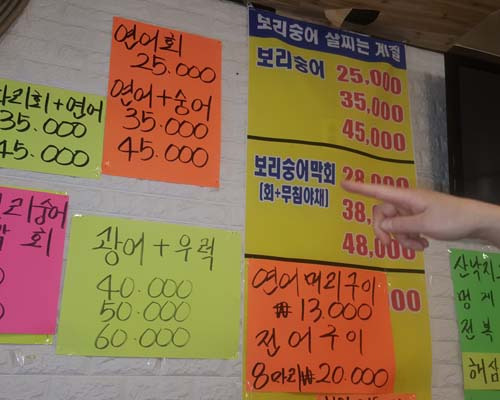 연어회
25.000
연어+숭어
35.000
45.000
리회+연어
35.000
45.000
숭어
회
광어+우럭
40.000
50.000
60.000
보리숭어 살찌는 계절
보리숭어
25,000
35,000
45,000
보리숭어막회
[회+무침야채]
28,000
38,
48,000
00
연어매리구이
₩13.000
전어구이
8마리₩20.000
산낙지
멍게
전복
해삼